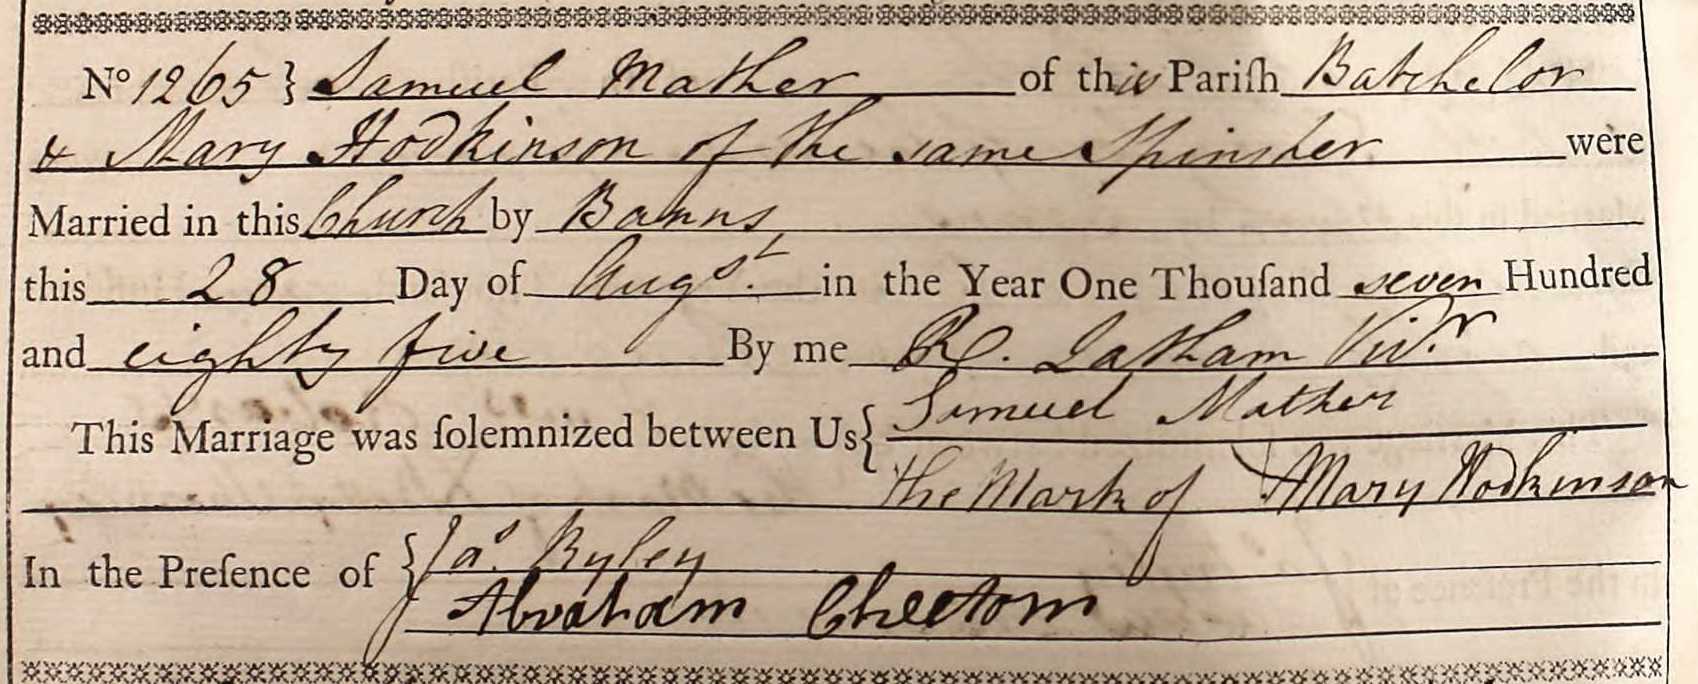 No 1265 } Samuel Mather of this Pariſh Batchelor
& Mary Hodkinson of the same Spinster were
Married in this Church by Banns
this 28 Day of Augst. in the Year One Thouſand seven Hundred
and eighty five By me R. Latham Vicr
This Marriage was ſolemnized between Us { Samuel Mather
the Mark of X Mary Hodkinson
In the Preſence of { Jas. Ryley
Abraham Cheetom